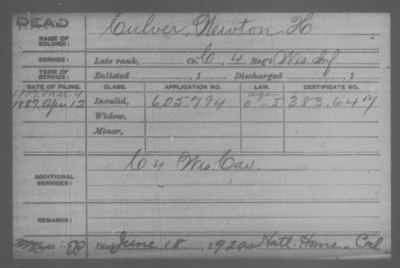 DEAD
NAME OF SOLDIER: Culver, Newton H
SERVICE: Late rank, Co. C, 4 Reg't Wis Inf
TERM OF SERVICE: Enlisted , 1 Discharged , 1
DATE OF FILING. CLASS. APPLICATION NO. LAW. CERTIFICATE NO.
1887. Apr. 13 Invalid, 605.774 383.647
Widow,
Minor,
C 4 Wis Cav
ADDITIONAL SERVICES:
REMARKS:
Died June 18, 1920 Natl. Home - Cal